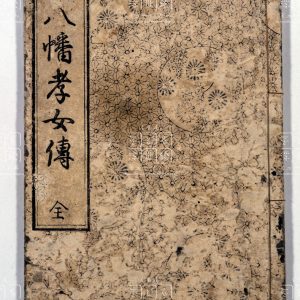 八幡孝女傳 全